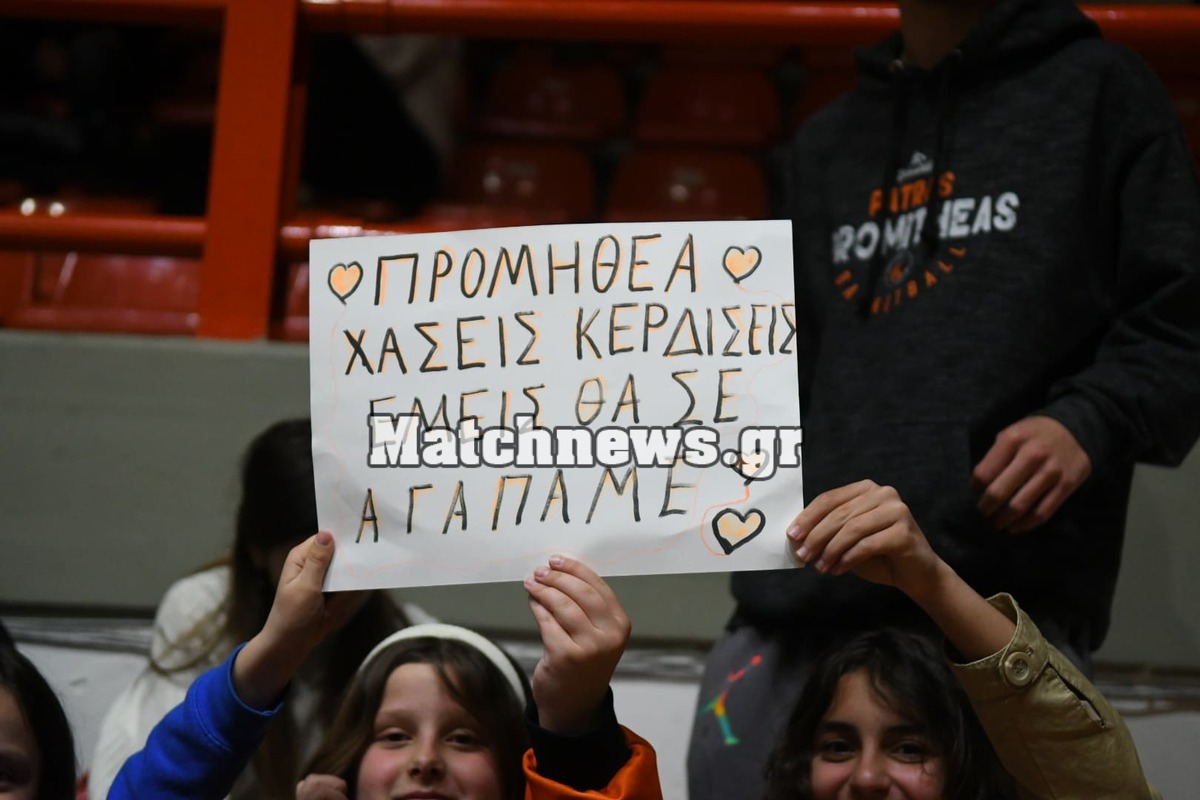 ΠΡΟΜΗΘΕΑ
ΧΑΣΕΙΣ ΚΕΡΔΙΣΕΙΣ
ΕΜΕΙΣ ΘΑ ΣΕ
ΑΓΑΠΑΜΕ
Matchnews.gr
PATRAS
PROMITHEAS